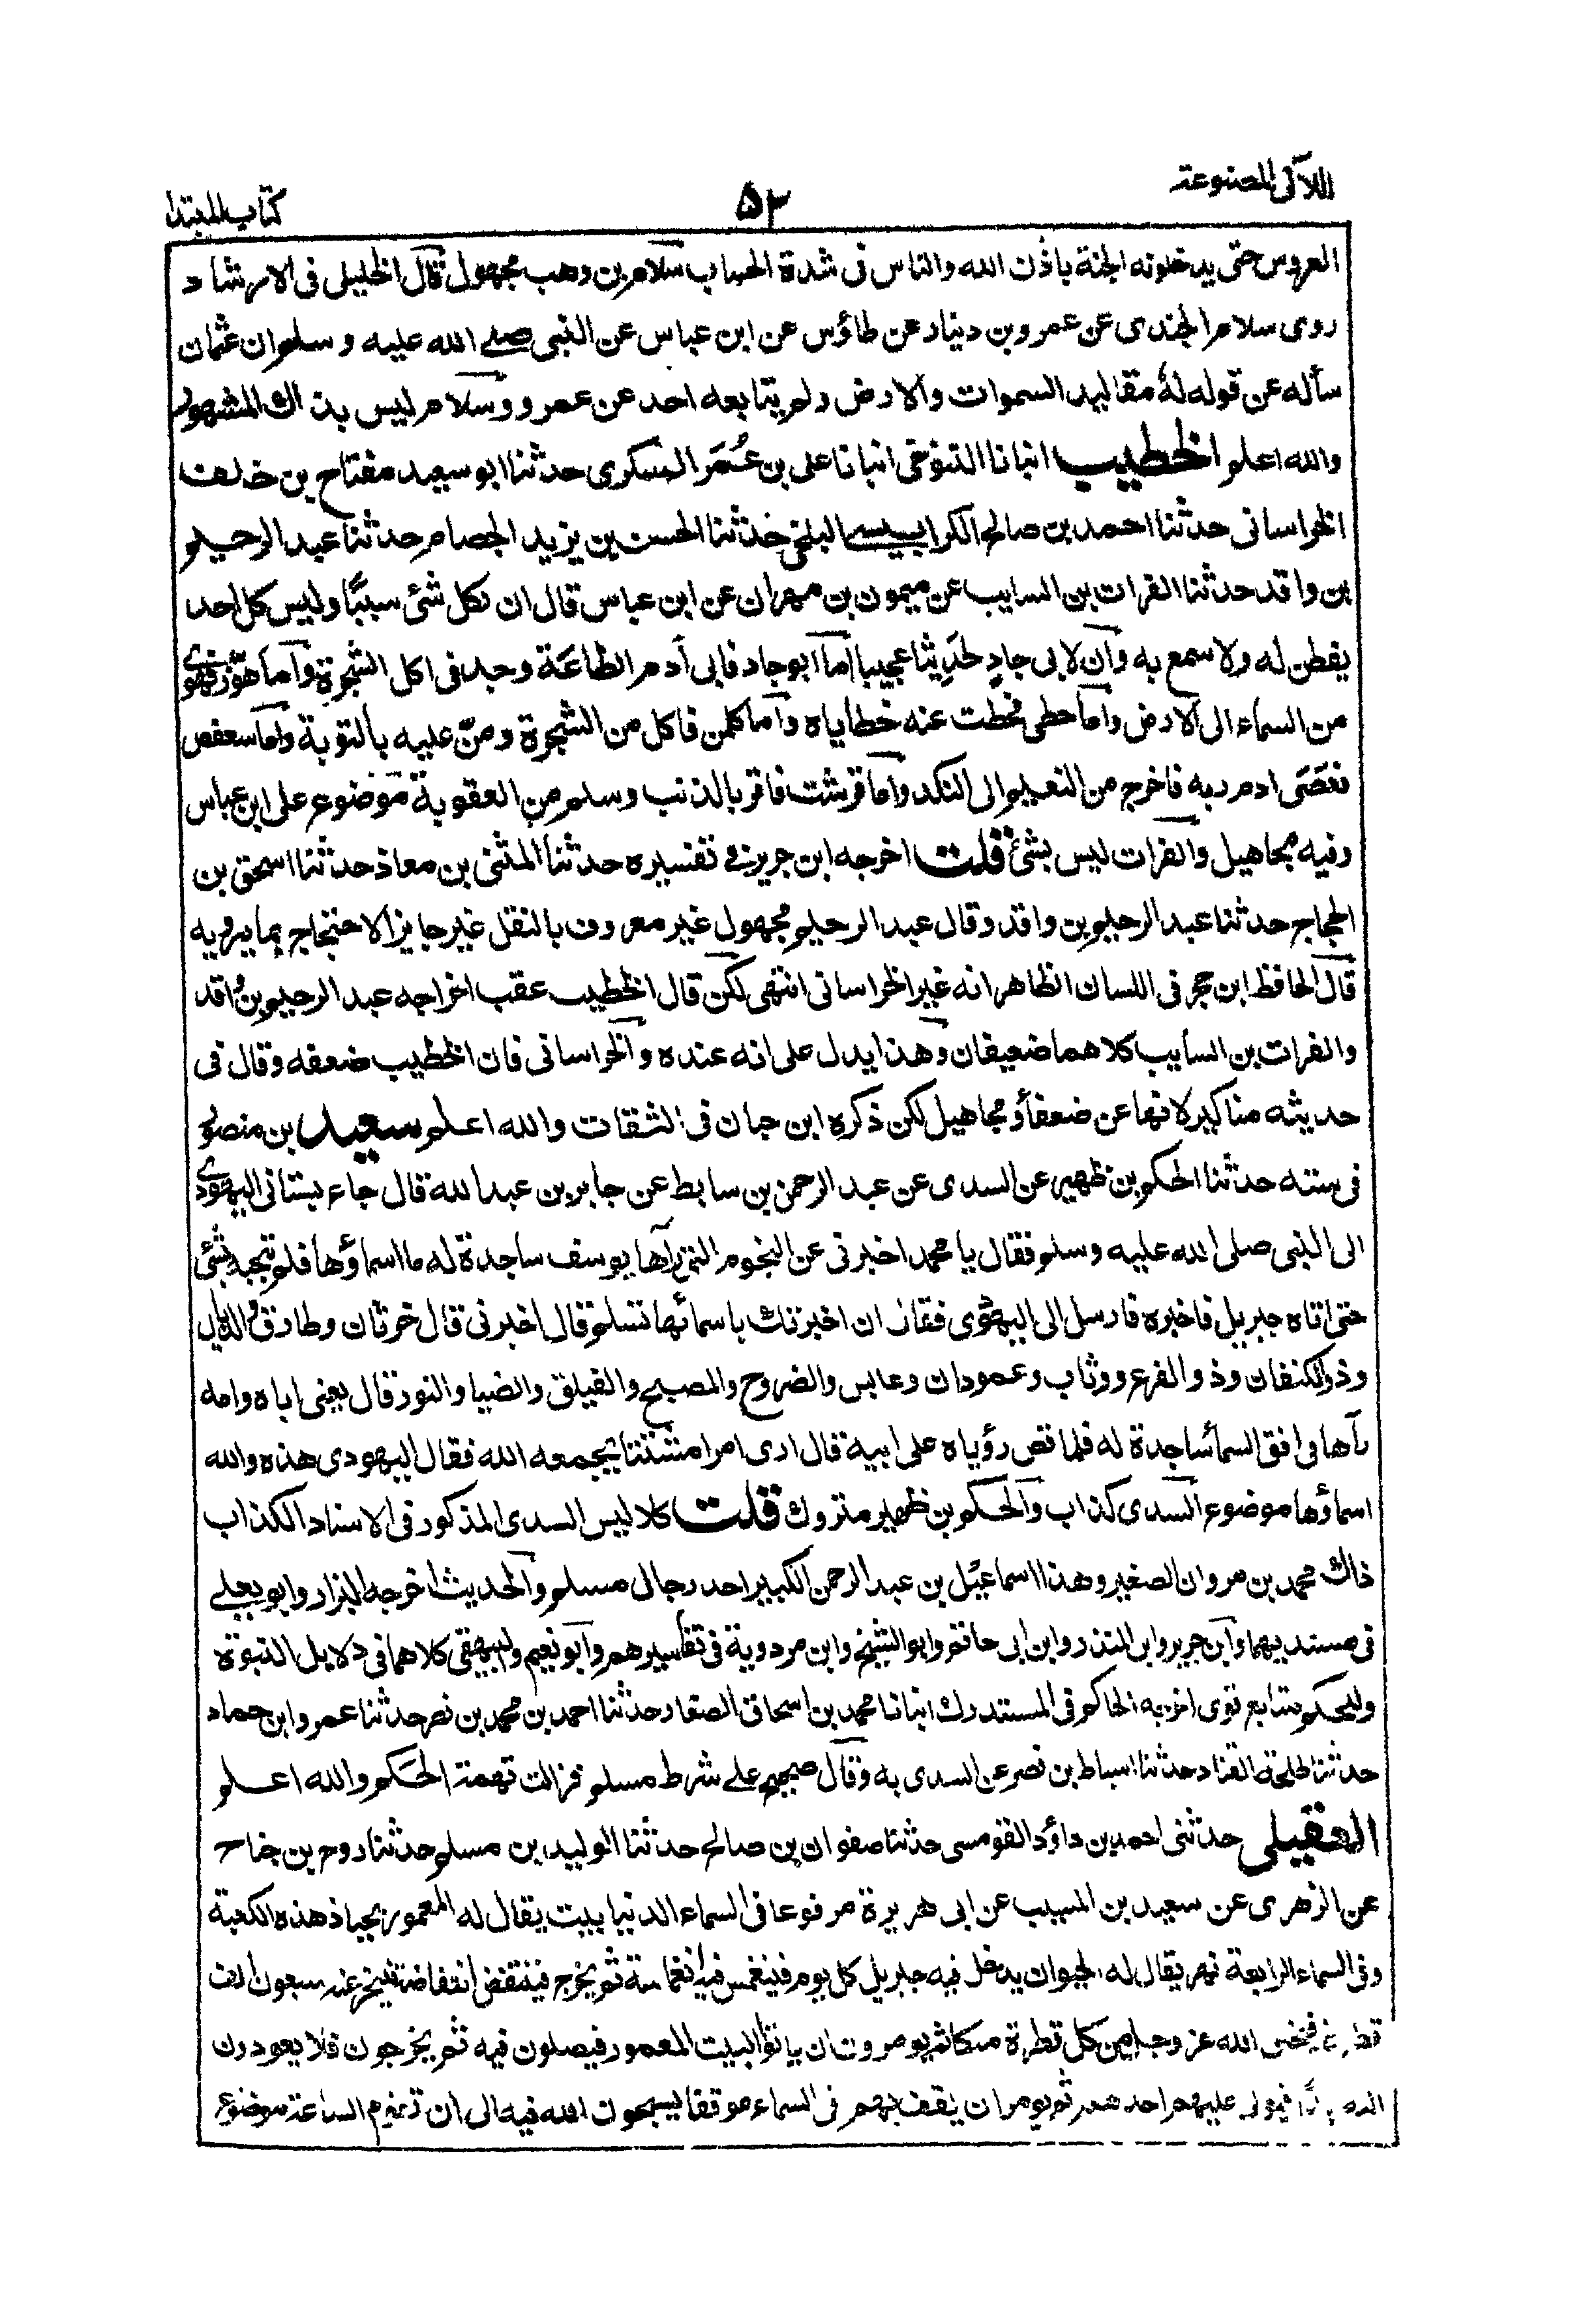 اللآلى المصنوعة
۵۲
كتاب المبتدا
العروس حتى يدخلونه الجنة باذن الله والناس فى شدة الحساب سلام بن وهب مجهول قال الخليلى فى الارشاد
روى سلام الجندى عن عمرو بن دينار عن طاؤس عن ابن عباس عن النبى صلى الله عليه وسلم ان عثمان
سأله عن قوله لهٗ مقاليد السموات والارض ولم يتابعه احد عن عمرو وسلام ليس بذاك المشهور
والله اعلم الخطيب انبانا التنوخى انبانا على بن عُمَر السكرى حدثنا ابو سعيد مفتاح بن خلف
الخراسانى حدثنا احمد بن صالح الكرابيسى البلخى حدثنا الحسن بن يزيد الجصاص حدثنا عبد الرحيم
بن واقد حدثنا الفرات بن السايب عن ميمون بن مهران عن ابن عباس قال ان لكل شئ سببًا وليس كل احد
يفطن له ولا سمع به وان لابى جادٍ لحَدِيثا عجيبا اما ابو جاد فابى أدم الطاعَة وجد فى اكل الشجرة واما هوّز فهوى
من السماء الى الارض واما حطى فحطت عنه خطاياه واما كلمن فاكل من الشجرة ومنّ عليه بالتوبة واما سعفص
فعَصَى ادم ربه فاخرج من النعيم الى النكد واما قرشت فاقر بالذنب وسلم من العقوبة مَوضوع على ابن عباس
وفيه مجاهيل والفرات ليس بشئ قلت اخرجه ابن جرير فى تفسيره حدثنا المثنى بن معاذ حدثنا اسحق بن
الحجاج حدثنا عبد الرحيم بن واقد وقال عبد الرحيم مجهول غير معروف بالنقل غير جايز الاحتجاج بما يرويه
قال الحافظ ابن حجر فى اللسان الظاهر انه غير الخراسانى انتهى لكن قال الخطيب عقب اخراجه عبد الرحيم بن واقد
والفرات بن السايب كلاهما ضعيفان وهذا يدل على انه عنده والخراسانى فان الخطيب ضعفه وقال فى
حديثه مناكير لانها عن ضعفأ ومجاهيل لكن ذكره ابن حبان فى الثقات والله اعلم سعيد بن منصور
فى سننه حدثنا الحكم بن ظهير عن السدى عن عبد الرحمن بن سابط عن جابر بن عبد الله قال جاء بستانى اليهودى
الى النبى صلى الله عليه وسلم فقال يا محمد اخبرنى عن النجوم التى رآها يوسف ساجدة له ما اسماؤها فلم يجبه بشئ
حتى اتاه جبريل فاخبره فارسل الى اليهودى فقال ان اخبرتك باسمائها تسلم قال اخبرنى قال خرثان وطارق والذيال
وذو الكنفان وذو الفرع ووثاب وعمودان وعابس والضروح والمصبح والفيلق والضيا والنور قال يعنى اباه وامه
رآها فى افق السمأ ساجدة له فلما قص رؤياه على ابيه قال ارى امرا متشتتا يجمعه الله فقال اليهودى هذه والله
اسماؤها موضوع السدى كذاب والحكم بن ظهير متروك قلت كلا ليس السدى المذكور فى الاسناد الكذاب
ذاك محمد بن مروان الصغير وهذا اسماعيل بن عبد الرحمن الكبير احد رجال مسلم والحديث اخرجه البزار وابو يعلى
فى مسنديهما وابن جرير وابن المنذر وابن ابى حاتم وابو الشيخ وابن مردوية فى تفاسيرهم وابو نعيم والبيهقى كلاهما فى دلايل النبوة
وللحكم متابع قوى اخرجه الحاكم فى المستدرك انبانا محمد بن اسحاق الصفار حدثنا احمد بن محمد بن نصر حدثنا عمرو ابن حماد
حدثنا طلحة القناد حدثنا اسباط بن نصر عن السدى به وقال صحيح على شرط مسلم فزالت تهمة الحكم والله اعلم
العقيلى حدثنى احمد بن داؤد القومسى حدثنا صفوان بن صالح حدثنا الوليد بن مسلم حدثنا روح بن جناح
عن الزهرى عن سعيد بن المسيب عن ابى هريرة مرفوعا فى السماء الدنيا بيت يقال له المعمور بحياذ هذه الكعبة
وفى السماء الرابعة نهر يقال له الحيوان يدخل فيه جبريل كل يوم فينغمس فيه انغماسة ثم يخرج فينتفض انتفاضة فيخر عنه سبعون الف
قطرة فيخلق الله عز وجل من كل قطرة ملكا ثم يومرون ان ياتوا البيت المعمور فيصلون فيه ثم يخرجون فلا يعودون
اليه ابدًا فيولى عليهم احدهم ثم يومر ان يقف بهم فى السماء موقفا يسبحون الله فيه الى ان تقوم الساعة موضوع